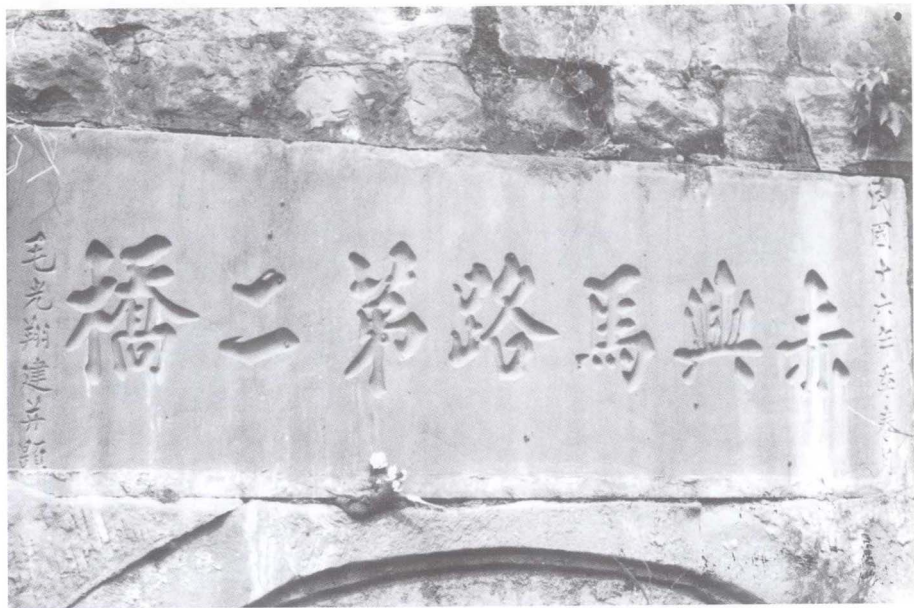 民國十六年
赤興馬路第二橋
毛光翔建并題